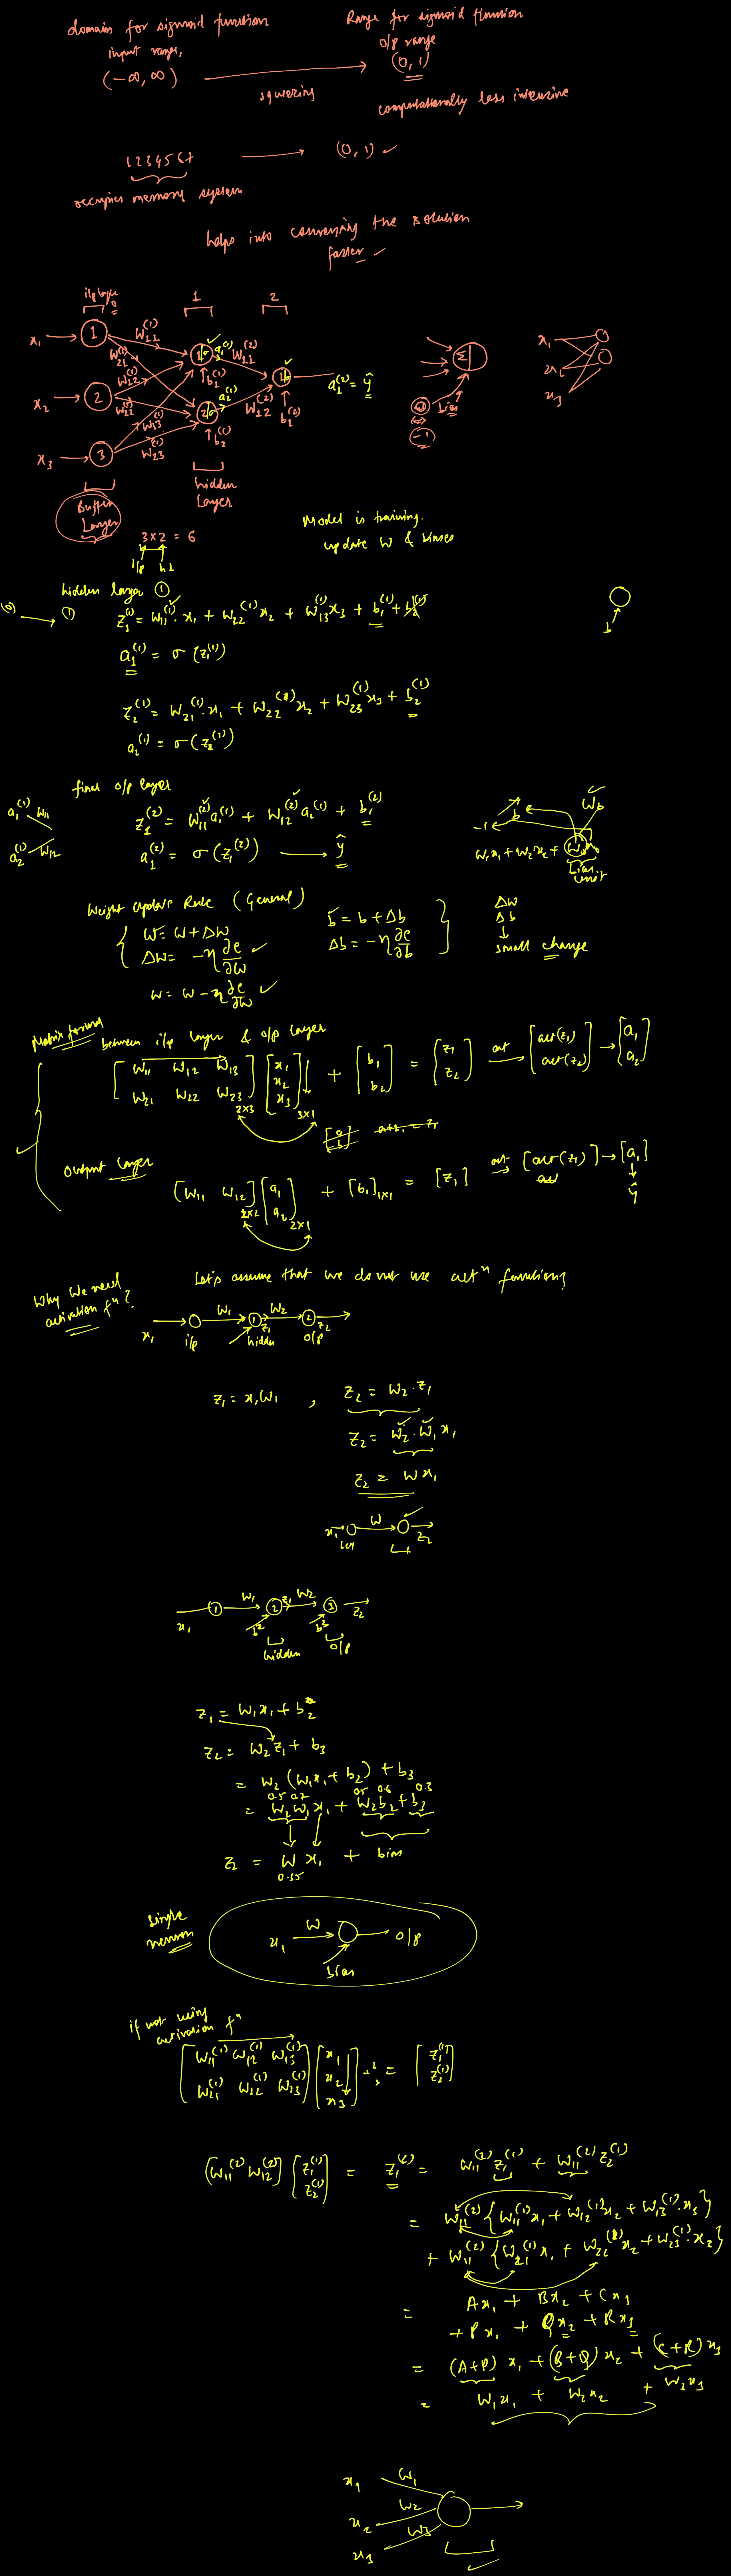 domain for sigmoid function
input range,
(-∞, ∞)
Range for sigmoid function
o/p range
(0, 1)
squeezing
computationally less intensive
1234567
(0, 1) ✓
occupies memory system
helps into converging the solution
faster ✓
i/p layer
0
1
2
x₁
1
W₁₁⁽¹⁾
W₂₁⁽¹⁾
a₁⁽¹⁾
W₁₁⁽²⁾
b₁⁽¹⁾
x₂
2
W₁₂⁽¹⁾
W₂₂⁽¹⁾
a₂⁽¹⁾
W₁₂⁽²⁾
b₁⁽²⁾
a₁⁽²⁾ = ŷ
x₃
3
W₁₃⁽¹⁾
W₂₃⁽¹⁾
b₂⁽¹⁾
Σ
bias
-1
x₁
x₂
x₃
hidden
Layer
Buffer
Layer
3 x 2 = 6
i/p h1
Model is training.
update W & biases
hidden layer ①
(0) → (1)
z₁⁽¹⁾ = W₁₁⁽¹⁾. x₁ + W₂₂⁽¹⁾ x₂ + W₁₃⁽¹⁾ x₃ + b₁⁽¹⁾
b
a₁⁽¹⁾ = σ (z₁⁽¹⁾)
z₂⁽¹⁾ = W₂₁⁽¹⁾. x₁ + W₂₂⁽¹⁾ x₂ + W₂₃⁽¹⁾ x₃ + b₂⁽¹⁾
a₂⁽¹⁾ = σ (z₂⁽¹⁾)
final o/p layer
a₁⁽¹⁾ W₁₁
a₂⁽¹⁾ W₁₂
z₁⁽²⁾ = W₁₁⁽²⁾ a₁⁽¹⁾ + W₁₂⁽²⁾ a₂⁽¹⁾ + b₁⁽²⁾
a₁⁽²⁾ = σ (z₁⁽²⁾) → ŷ
-1
b
W_b
W₁x₁ + W₂x₂ +
bias
unit
Weight Update Rule (General)
W = W + ΔW
ΔW = -η ∂e/∂W ✓
W = W - η ∂e/∂W ✓
b = b + Δb
Δb = -η ∂e/∂b
ΔW
Δb
↓
small change
Matrix format
between i/p layer & o/p layer
[W₁₁ W₁₂ W₁₃ / W₂₁ W₂₂ W₂₃] 2x3 [x₁ / x₂ / x₃] 3x1 + [b₁ / b₂] = [z₁ / z₂] act → [act(z₁) / act(z₂)] → [a₁ / a₂]
[a / b]
Output layer
[W₁₁ W₁₂] 2x2 [a₁ / a₂] 2x1 + [b₁] 1x1 = [z₁] act → [act(z₁)] → [a₁]
↓
ŷ
Why We need
activation fⁿ?
Let's assume that we do not use actⁿ function?
x₁ W₁ 1 z₁ W₂ 2 z₂
i/p hidden o/p
z₁ = x₁W₁ , z₂ = W₂ . z₁
z₂ = W₂ . W₁ x₁
z₂ = W x₁
x₁ W z₂
x₁ 1 W₁ 2 z₁ W₂ 3 z₂
b² b³
hidden o/p
z₁ = W₁x₁ + b₂
z₂ = W₂ z₁ + b₃
= W₂ (W₁x₁ + b₂) + b₃
0.5 0.7 0.5 0.6 0.3
= W₂W₁ x₁ + W₂b₂ + b₃
z₂ = W x₁ + bias
0.35
Single
neuron
x₁ W o/p
bias
if not using
activation fⁿ
[W₁₁⁽¹⁾ W₁₂⁽¹⁾ W₁₃⁽¹⁾ / W₂₁⁽¹⁾ W₂₂⁽¹⁾ W₂₃⁽¹⁾] [x₁ / x₂ / x₃] = [z₁⁽¹⁾ / z₂⁽¹⁾]
[W₁₁⁽²⁾ W₁₂⁽²⁾] [z₁⁽¹⁾ / z₂⁽¹⁾] = z₁⁽²⁾ = W₁₁⁽²⁾ z₁⁽¹⁾ + W₁₁⁽²⁾ z₂⁽¹⁾
= W₁₁⁽²⁾ {W₁₁⁽¹⁾x₁ + W₁₂⁽¹⁾x₂ + W₁₃⁽¹⁾. x₃}
+ W₁₁⁽²⁾ {W₂₁⁽¹⁾x₁ + W₂₂⁽¹⁾x₂ + W₂₃⁽¹⁾. x₃}
= Ax₁ + Bx₂ + Cx₃
+ Px₁ + Qx₂ + Rx₃
= (A+P) x₁ + (B+Q) x₂ + (C+R) x₃
= W₁x₁ + W₂x₂ + W₃x₃
x₁ W₁
x₂ W₂
x₃ W₃